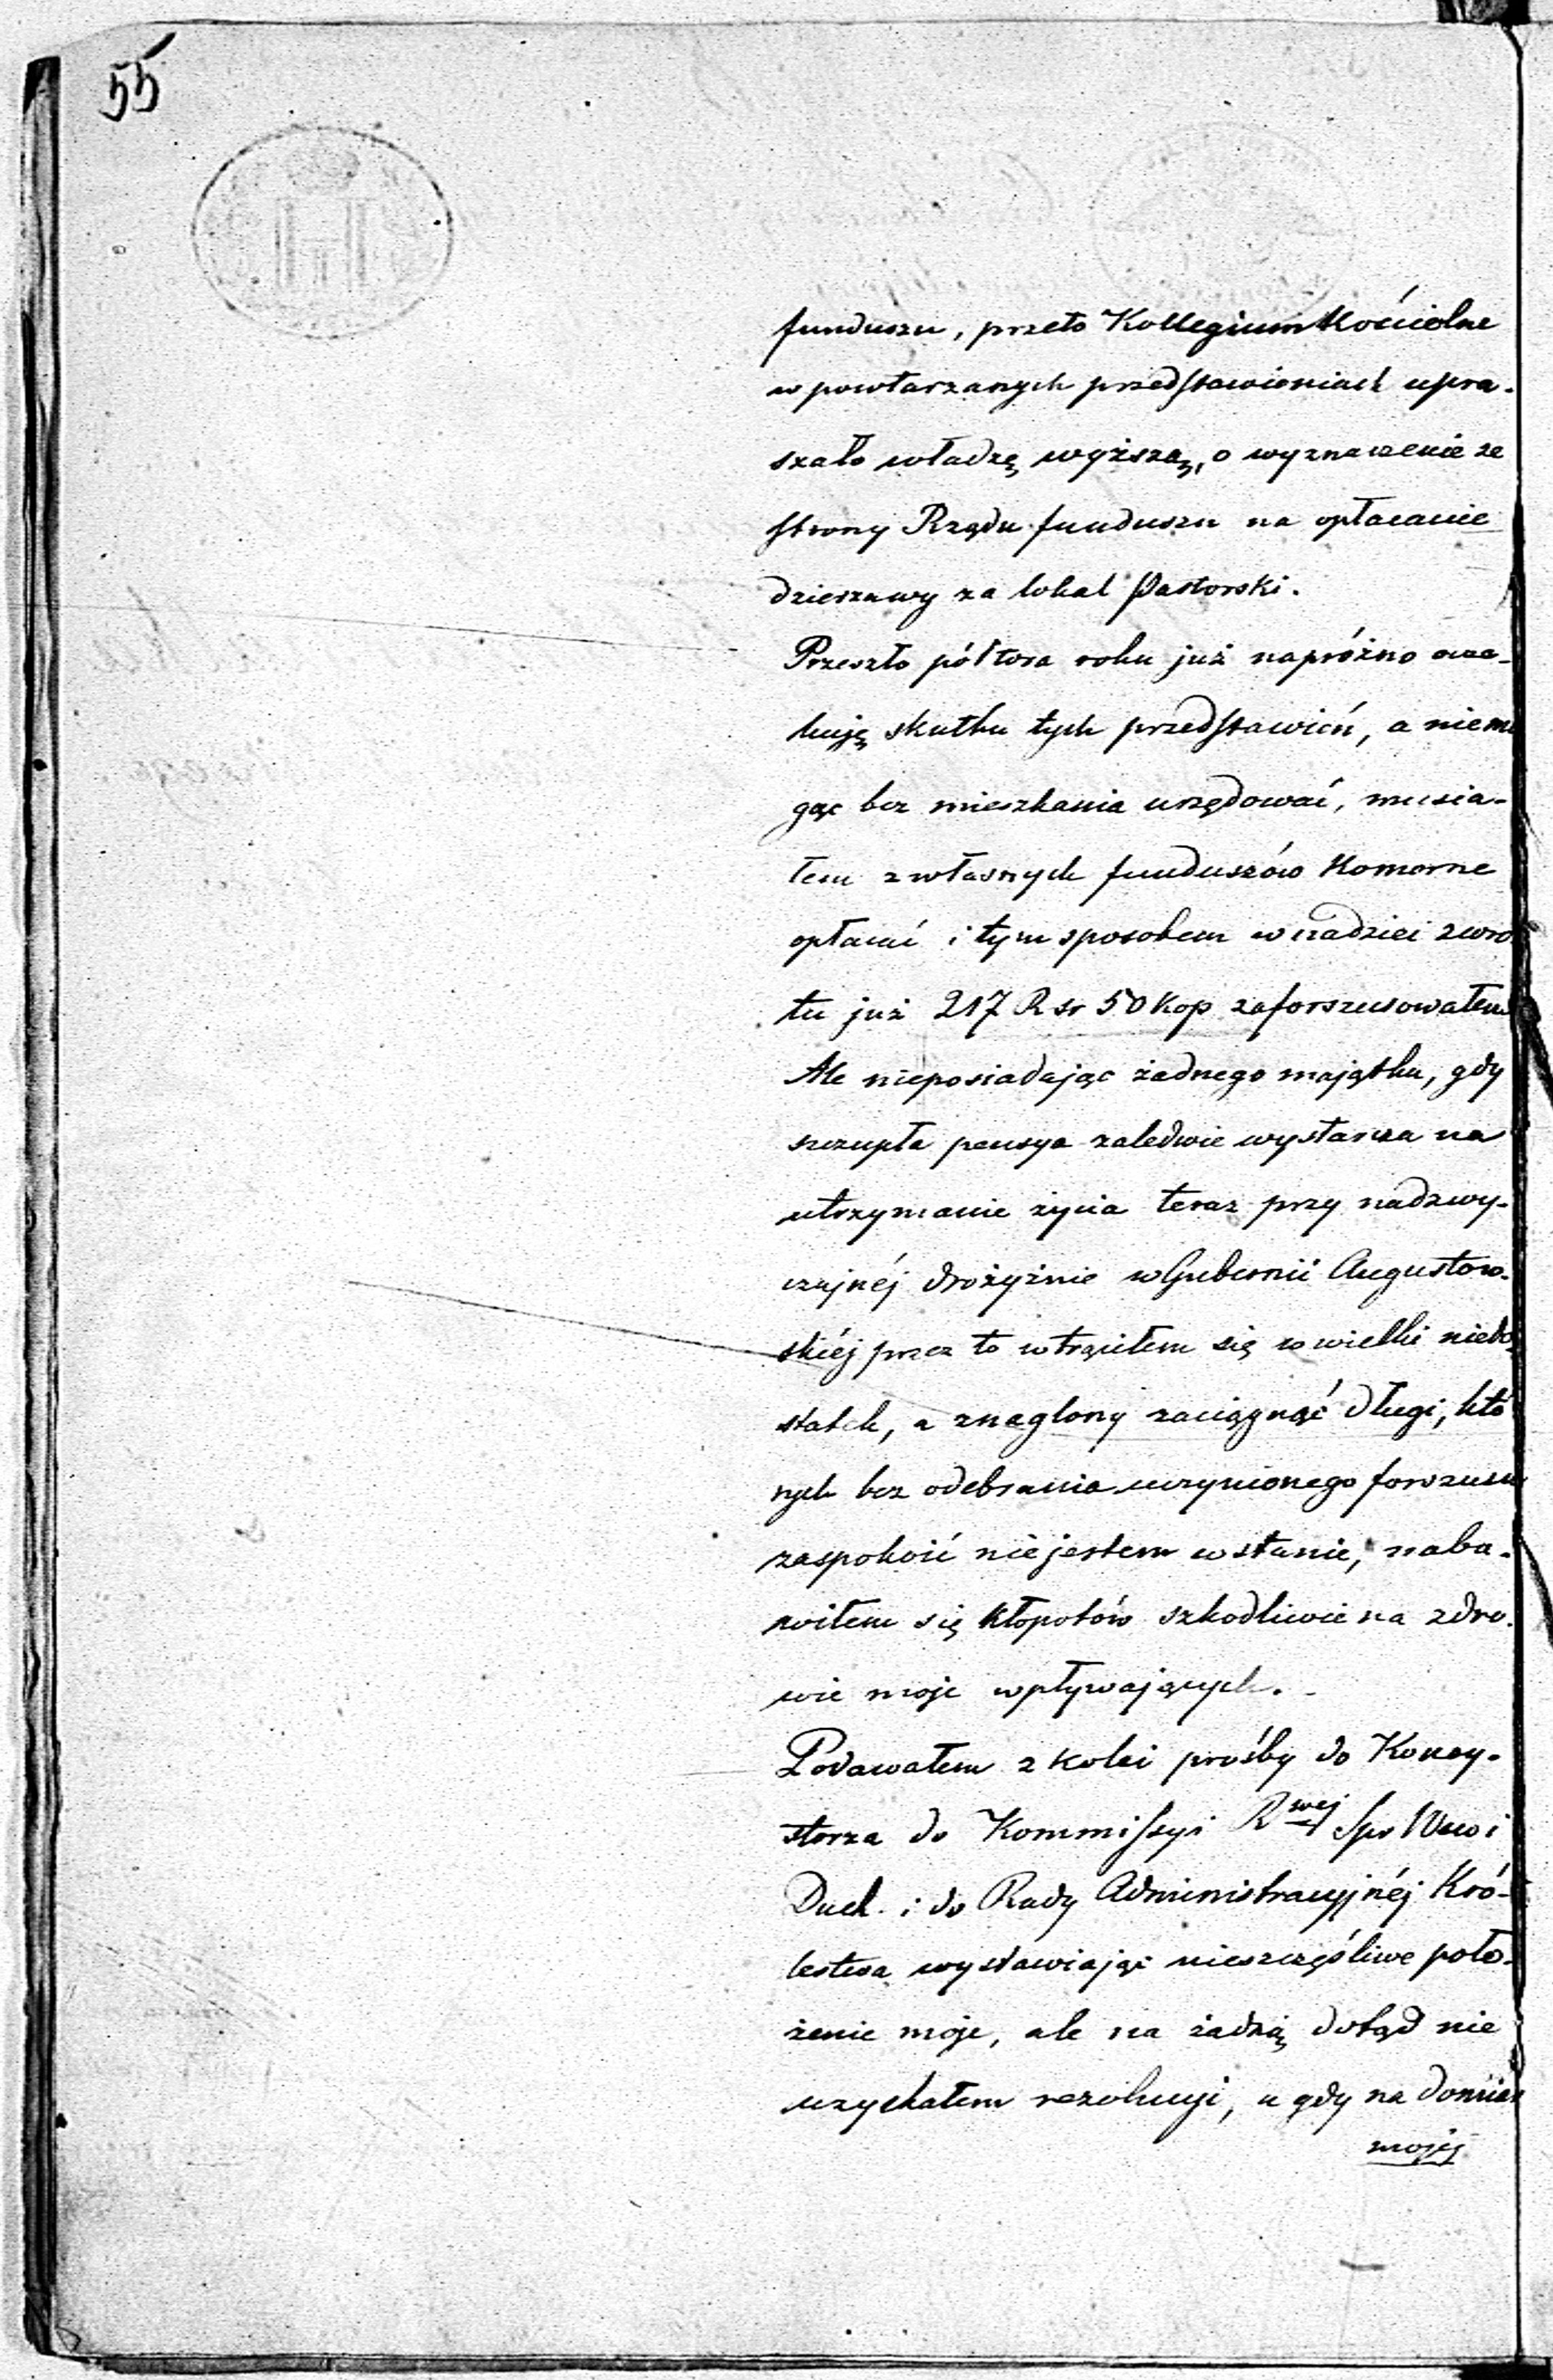 55
funduszu, przeto Kollegium Kościelne
w powtarzanych przedstawieniach upra-
szało władzę wyższą, o wyznaczenie ze
strony Rządu funduszu na opłacanie
dzierzawy za lokal Pastorski.
Przeszło półtora roku już napróżno ocze-
kuję skutku tych przedstawień, a niemo
gąc bez mieszkania urzędować, musia-
łem z własnych funduszów Komorne
opłacać i tym sposobem w nadziei zwro
tu już 217 R sr 50 Kop zaforszusowałem
Ale nieposiadając żadnego majątku, gdy
szczupła pensya zaledwie wystarcza na
utrzymanie życia teraz przy nadzwy-
czajnéj drożyźnie w Gubernii Augustow-
skiéj przez to wtrąciłem się w wielki niedo
statek, a znaglony zaciągnąć długi, któ
rych bez odebrania uczynionego forszusu
zaspokoić nie jestem w stanie, naba-
wiłem się kłopotów szkodliwie na zdro-
wie moje wpływających.
Podawałem z kolei prośby do Konsy-
storza do Kommissyi Rwej Spr Wew i
Duch. i do Rady Administracyjnéj Kró-
lestwa wystawiając nieszczęśliwe poło-
żenie moje, ale na żadną dotąd nie
uzyskałem rezolucyi, a gdy na domiar
mojéj